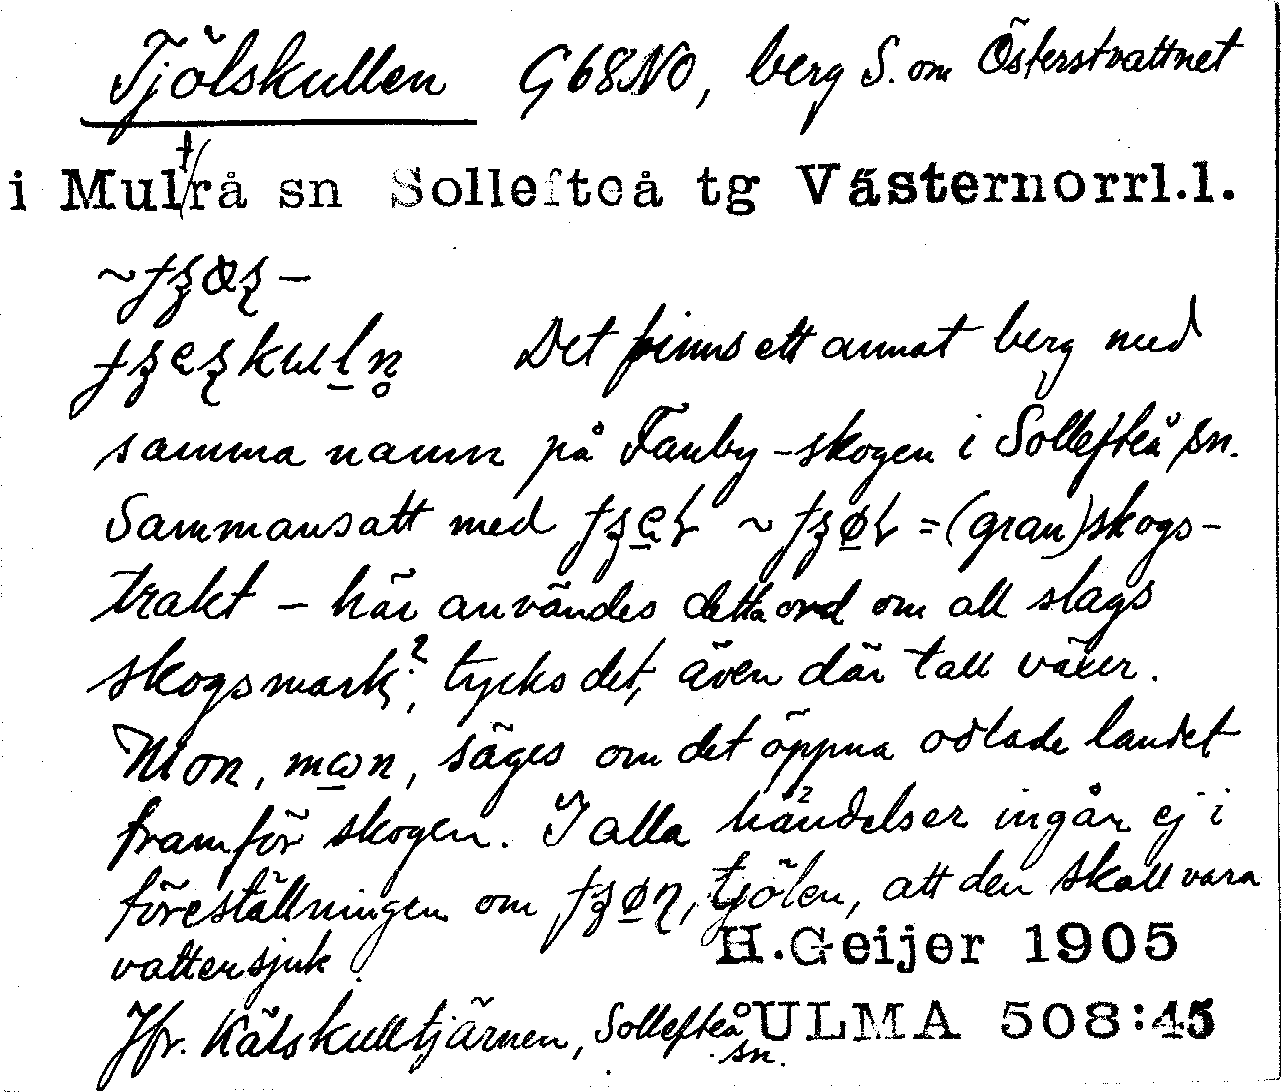 Tjölskullen G68NO, berg S. om Österstvattnet
i Multrå sn Sollefteå tg Västernorrl.l.
Det finns ett annat berg med
samma namn på Tanby-skogen i Sollefteå sn.
Sammansatt med ~ = (gran)skogs-
trakt – här användes detta ord om all slags
skogsmark?, tycks det, även där tall växer.
Mon, mɷn, säges om det öppna odlade landet
framför skogen. I alla händelser ingår ej i
föreställningen om tjölen, att den skall vara
vattensjuk.
H.Geijer 1905
Jfr. Kälskulltjärnen, Sollefteå sn.
ULMA 508:45